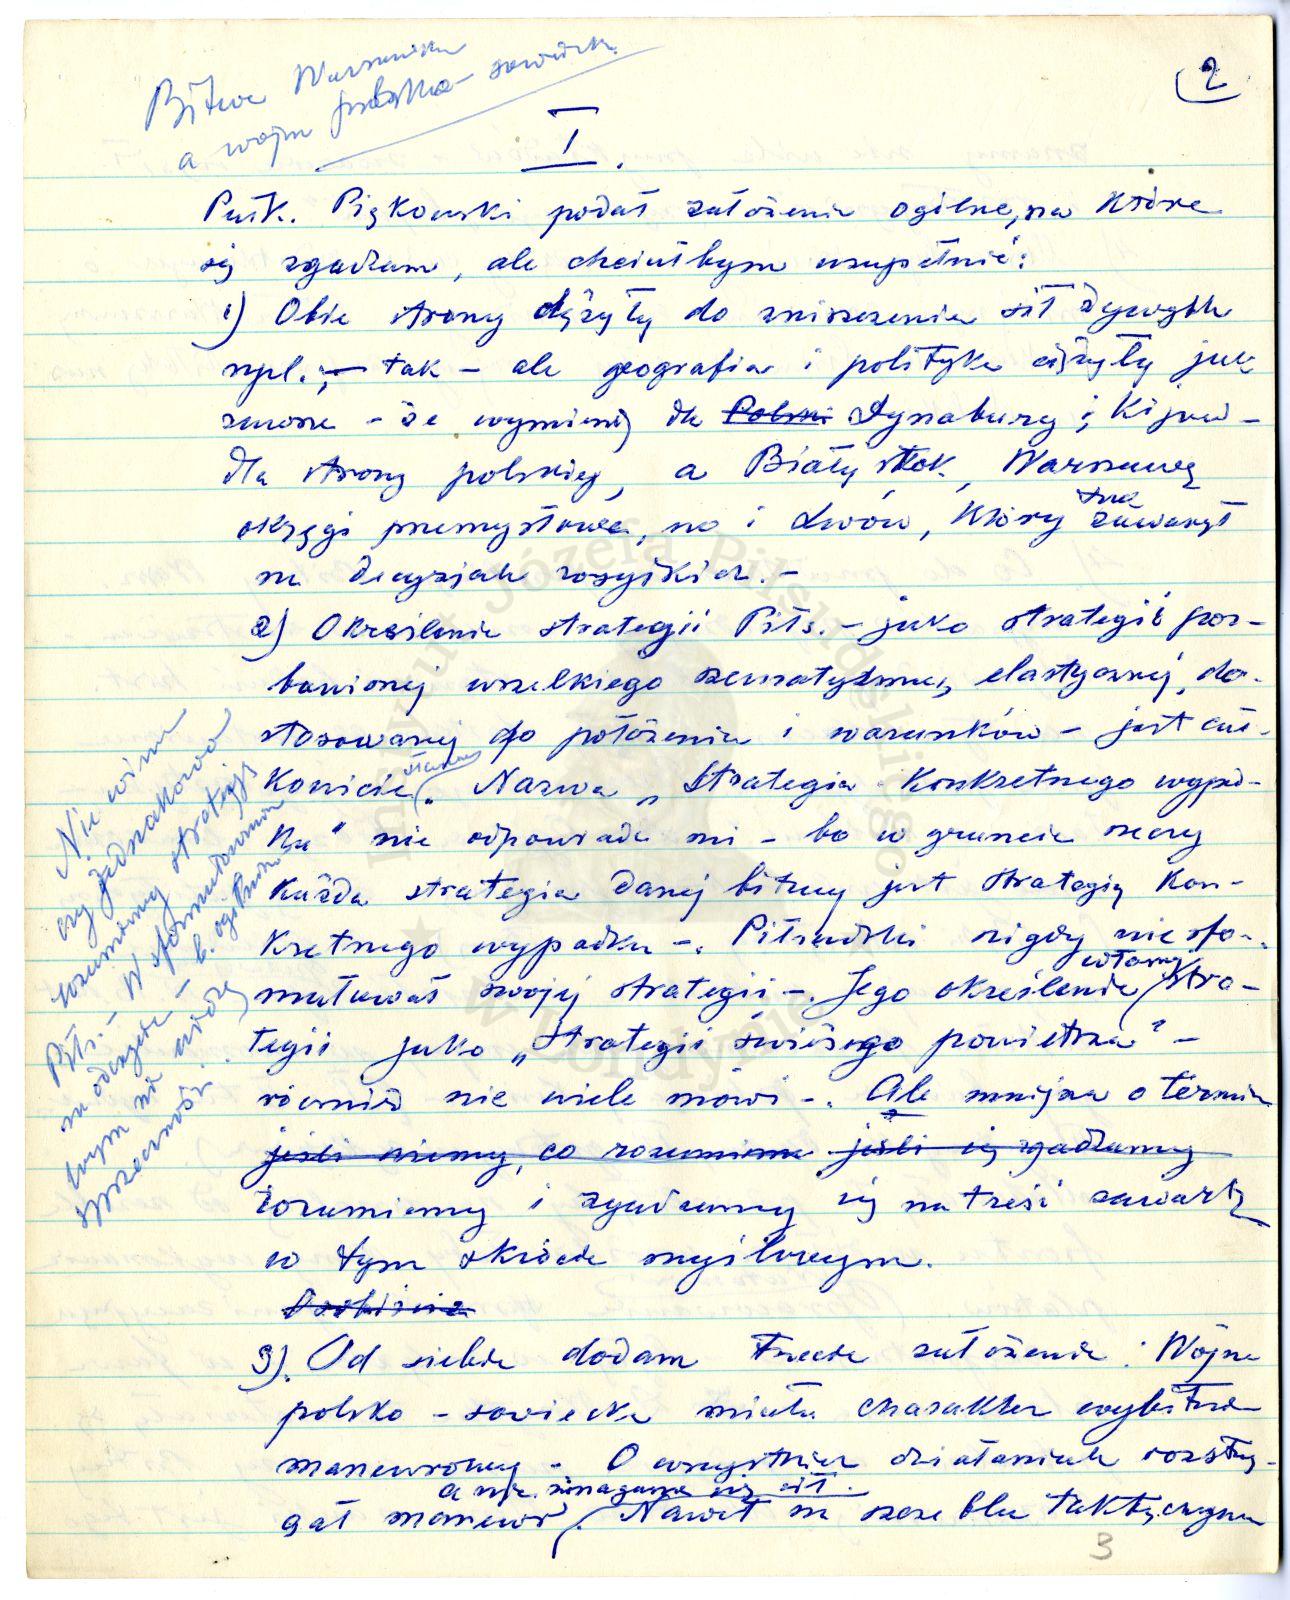 Bitwa Warszawska
a wojna polsko-sowiecka
2
I.
Pułk. Piątkowski podał założenia ogólne, na które
się zgadzam, ale chciałbym uzupełnić:
1) Obie strony dążyły do zniszenia sił żywych
npl. – tak – ale geografia i polityka ciążyły jak
zawsze – że wymienię dla Polski Dynaburg i Kijów –
dla strony polskiej, a Białystok, Warszawę
okręgi przemysłowe, no i Lwów, który
na decyzjach rosyjskich. –
2) Określenie strategii Piłs. – jako strategii poz-
bawionej wszelkiego szematyzmu, elastycznej, do-
stosowanej do położenia i warunków – jest cał-
kowicie słuszne. Nazwa „Strategia konkretnego wypad-
ku" nie odpowiada mi – bo w gruncie rzeczy
każda strategia danej bitwy jest strategią kon-
kretnego wypadku –. Piłsudski nigdy nie sfor-
mułował swojej strategii –. Jego określenie własnej stra-
tegii jako „strategii świeżego powietrza" –
również nie wiele mówi –. Ale mniejsza o termin
jeśli wiemy, co rozumiemy jeśli się zgadzamy
rozumiemy i zgadzamy się na treść zawartą
w tym skrócie myślowym.
Osobiście
3). Od siebie dodam trzecie założenie: Wojna
polsko-sowiecka miała charakter wybitnie
manewrowy – O wszystkich działaniach rozstrzy-
gał manewr, a nie zmaganie się sił. Nawet na szczeblu taktycznym
3
Nie wiem
czy jednakowo
rozumiemy strategię
Piłs. – W sformułowaniu
na odczycie – b. ogólniko-
wym nie widzę
sprzeczności.